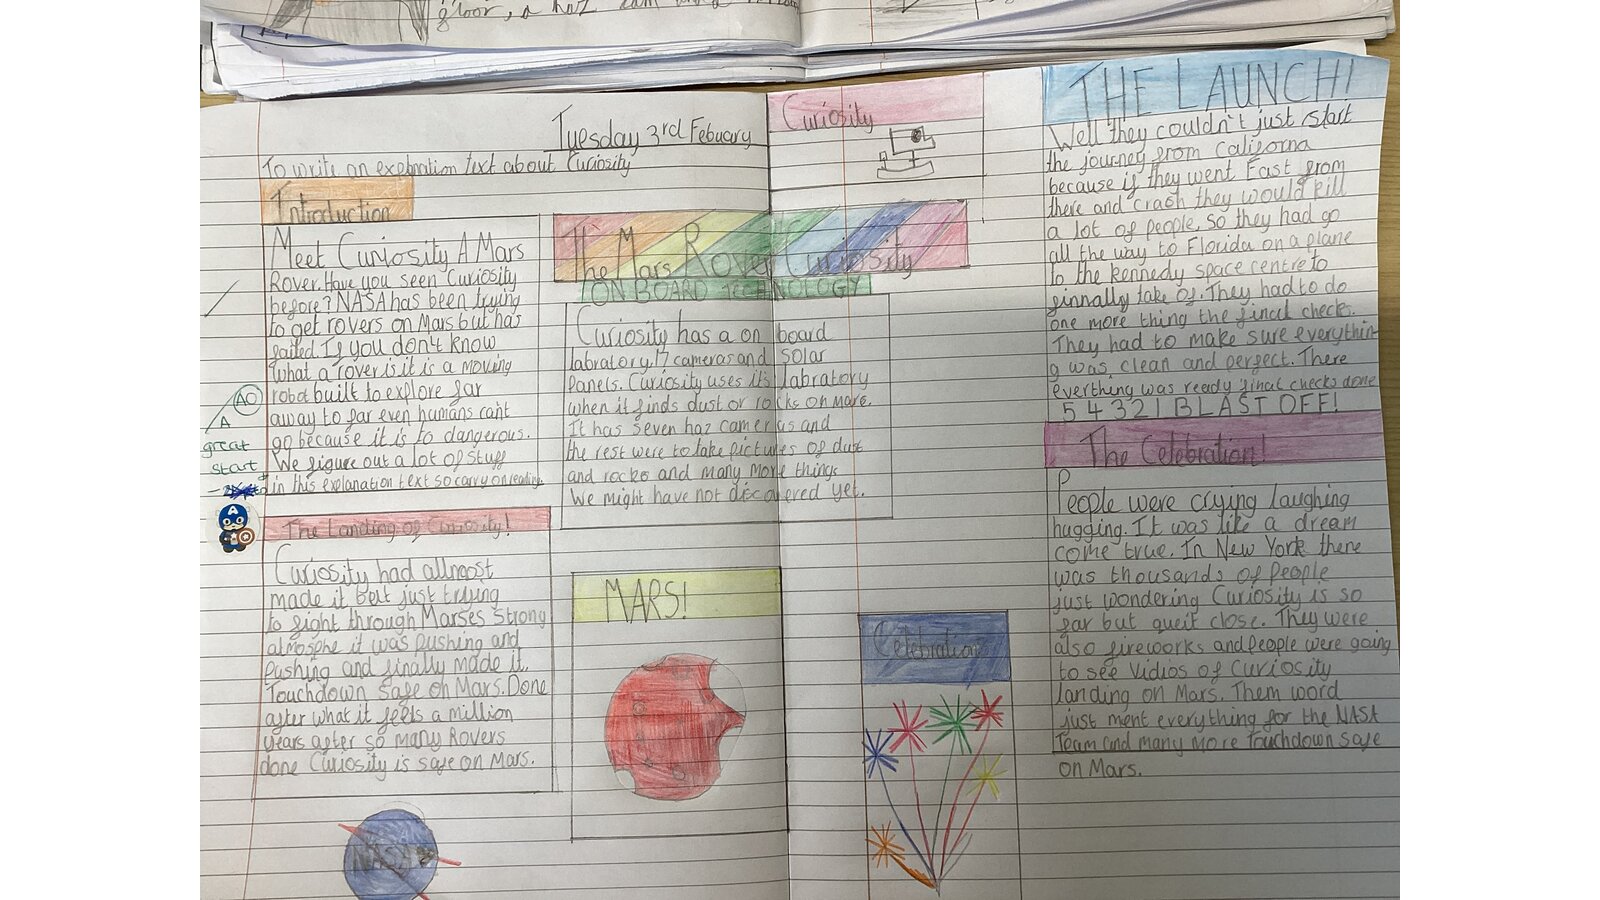 floor, a haz cam and a
Tuesday 3rd Febuary
To write an explanation text about Curiosity
Introduction
Meet Curiosity A Mars
Rover. Have you seen Curiosity
before? NASA has been trying
to get rovers on Mars but has
failed. If you don't know
what a rover is it is a moving
robot built to explore far
away to far even humans can't
go because it is to dangerous.
We figure out a lot of stuff
in this explanation text so carry on reading.
AO
A
great
start
A
The Landing of Curiosity!
Curiosity had allmost
made it belt just trying
to fight through Marses strong
atmosphe it was pushing and
pushing and finally made it.
Touchdown safe on Mars. Done
after what it feels a million
years after so many Rovers
done Curiosity is safe on Mars.
NASA
Curiosity
The Mars Rover Curiosity
ON BOARD TECHNOLOGY
Curiosity has a on board
labratory, 17 cameras and solar
Panels. Curiosity uses it's labratory
when it finds dust or rocks on mars.
It has seven haz cameras and
the rest were to take pictures of dust
and rocks and many more things
We might have not discovered yet.
MARS!
Celebration
THE LAUNCH!
Well they couldn't just start
the journey from Californa
because if they went Fast from
there and crash they would kill
a lot of people, So they had go
all the way to Florida on a plane
to the kennedy space centre to
finnally take of. They had to do
one more thing the final checks.
They had to make sure everythin
g was clean and perfect. There
everthing was ready final checks done
5 4 3 2 1 BLAST OFF!
The Celebration!
P
People were crying laughing
hugging. It was like a dream
come true. In New York there
was thousands of People
just wondering Curiosity is so
far but queit close. They were
also fireworks and people were going
to see Vidios of Curiosity
landing on Mars. Them word
just ment everything for the NASA
Team and many more Touchdown safe
on Mars.